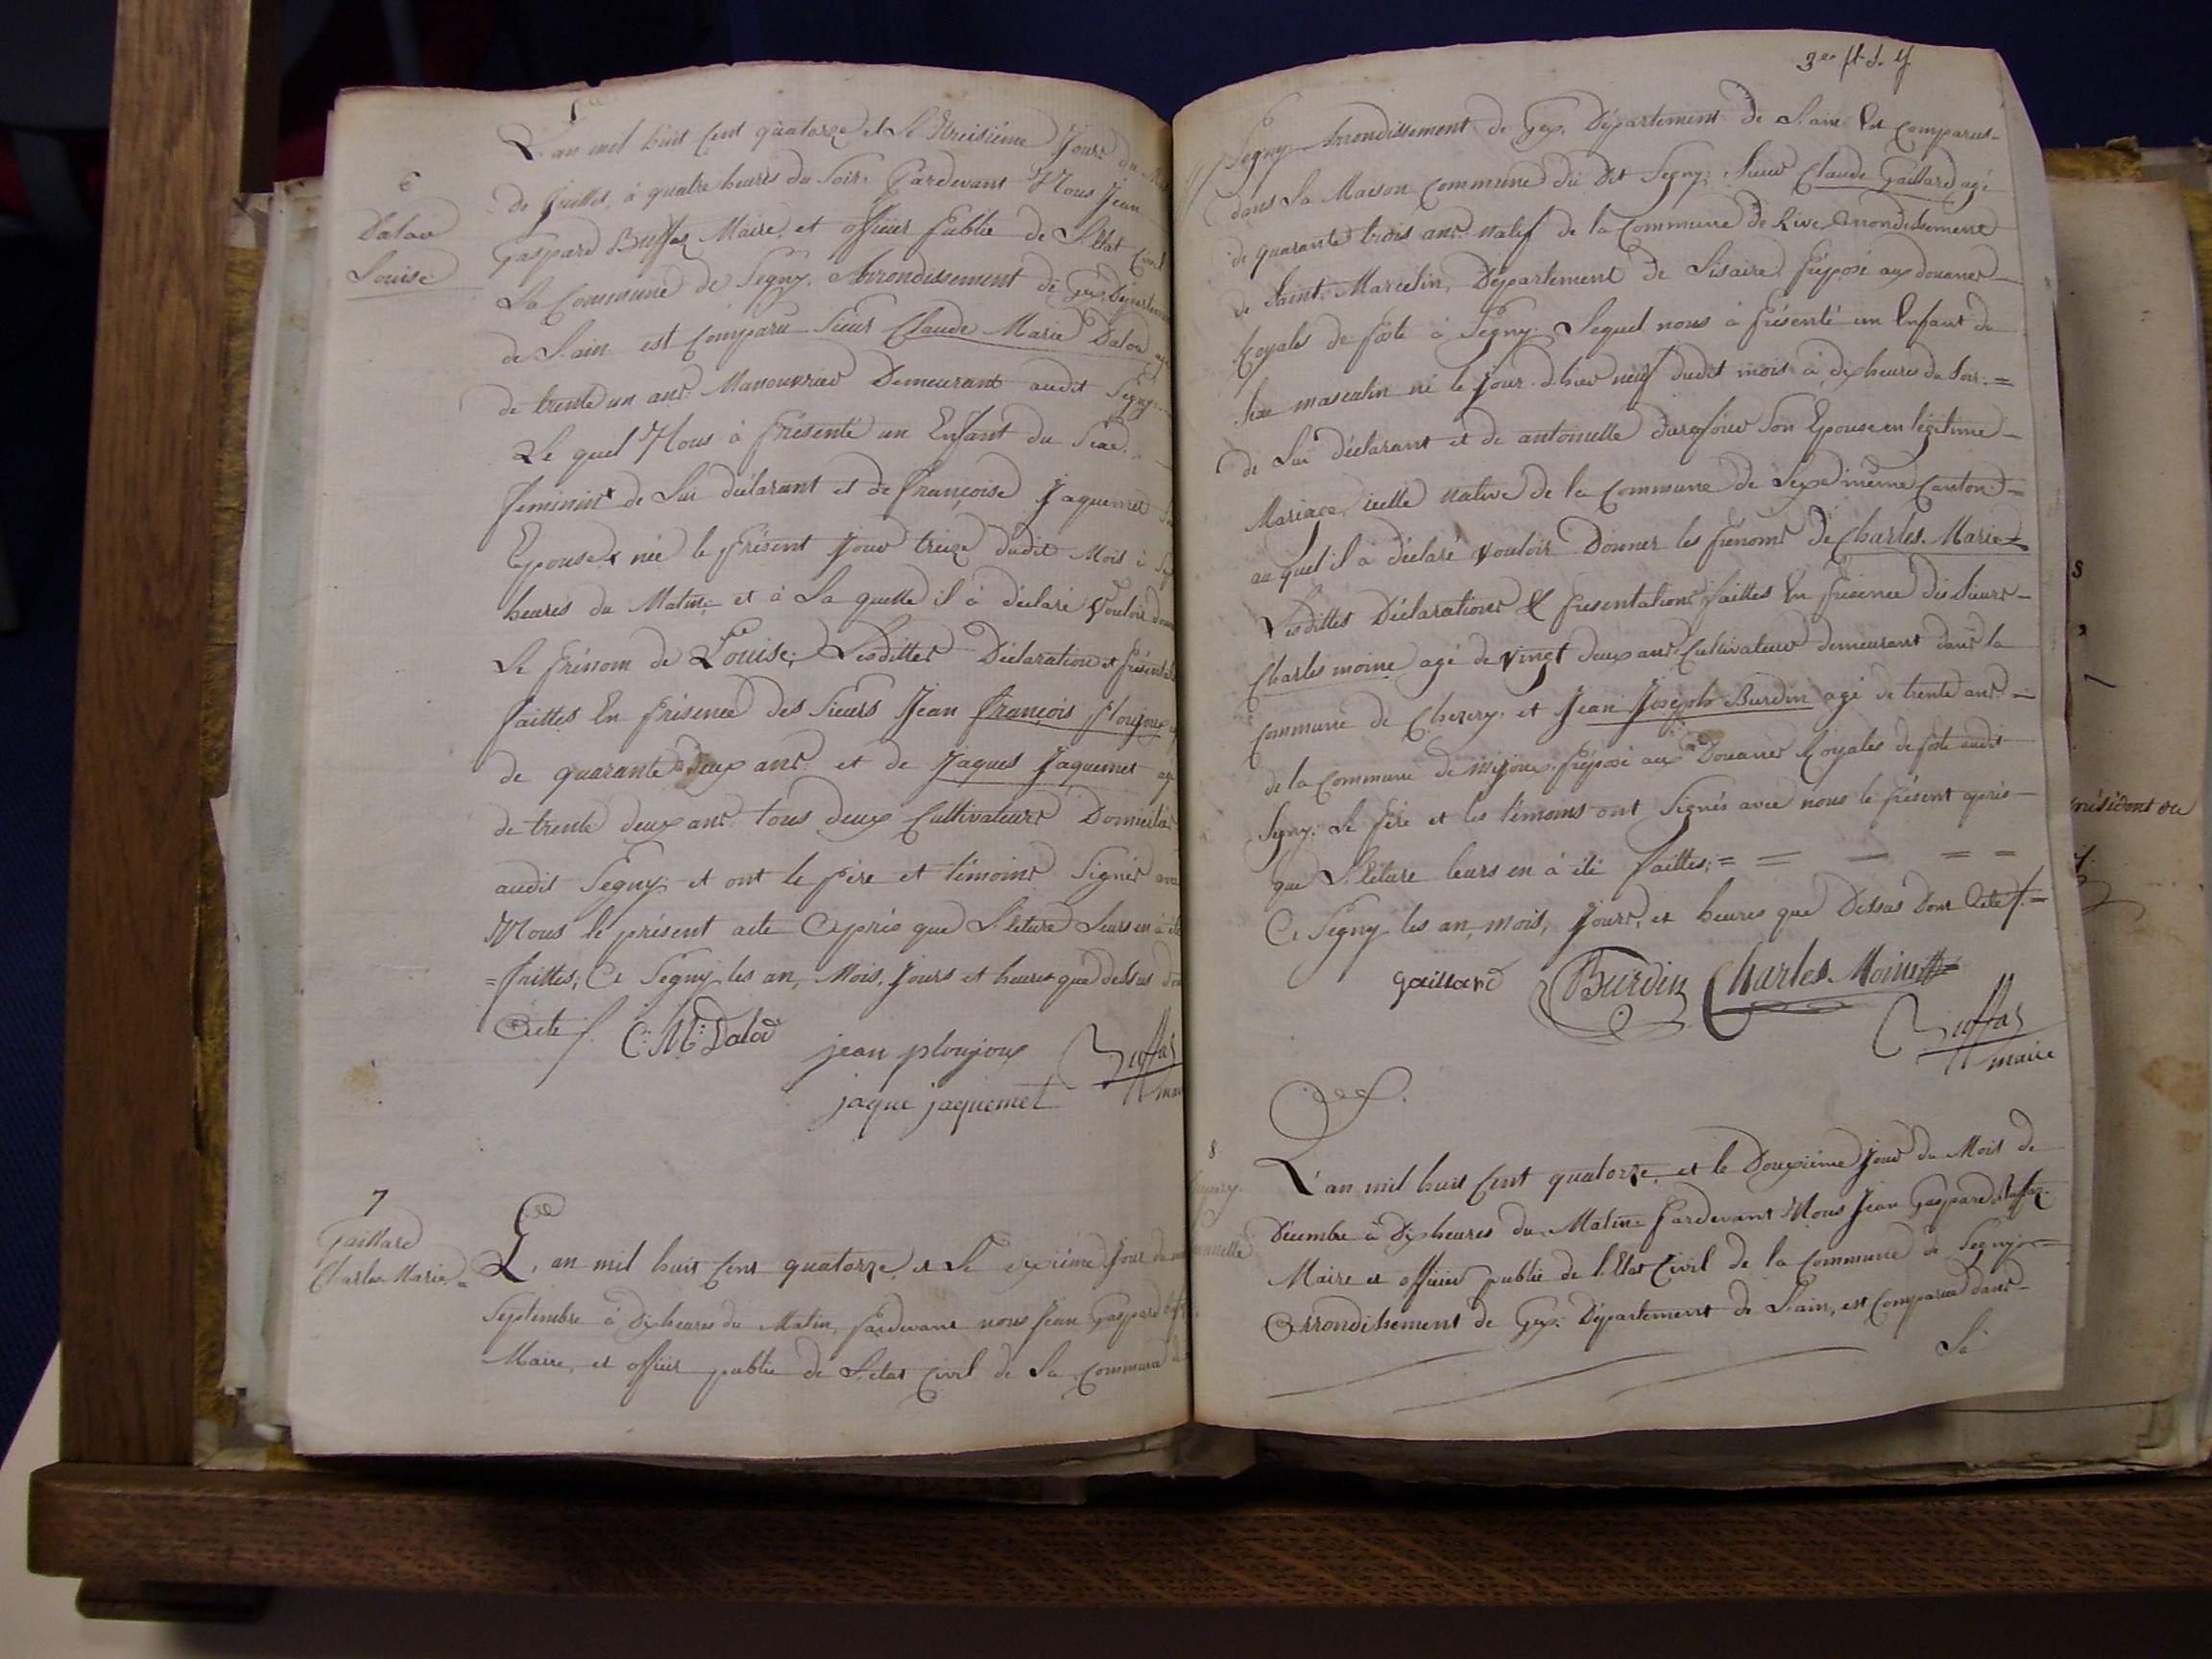 6
Dalod
Louise
L'an mil huit Cent quatorze et Le Treisiéme Jour du
de Juillet, à quatre heures du Soir. Pardevant Nous Jean
Gaspard Buffaz Maire, et officier Public de L'Etat Civil
La Commune de Segny, Arrondissement de Gex, Département
de L'ain, est Comparu Sieur Claude Marie Dalod
de trente un ans Manouvrier Demeurant audit Segny
Le quel Nous à Présenté un Enfant du Sexe
feminin de Lui déclarant et de françoise Jaquemet
Epouse née le Présent Jour treize dudit Mois à
heures du Matin et à La quelle il à déclaré Vouloir
Le Prénom de Louise; Lesdittes Déclaration et
faittes En Présence des Sieurs Jean françois Ploujoux
de quarante deux ans et de Jaques Jaquemet
de trente deux ans tous deux Cultivateurs
audit Segny et ont le Père et témoins Signés
Nous le présent acte Après que Léture Leurs en à été
=faittes, Ce Segny les an, Mois, Jours et heures que dessus
Acte C. M. Dalod
jean ploujoux Buffaz
jaque jaquemet
7
Gaillard
Charles Marie
L'an mil huit Cent quatorze, et Le Jour
Septembre à Dix heures du Matin, Pardevant nous Jean Gaspard
Maire, et officier public de L'état Civil de La Commune
Segny Arrondissement de Gex, Département de L'ain Est Comparus
dans La Maison Commune du Dit Segny, Sieur Claude Gaillard agé
de quarante trois ans natif de la Commune de Rive Arrondissement
de Saint Marcelin, Département de Lisaire, Préposé aux douanes
Royales de Poste à Segny. Lequel nous à Présenté un Enfant du
sexe masculin né le jour d'hier neuf dudit mois à dix heures du Soir. =
de Lui déclarant et de antoinette Son Epouse en légitime
Mariage, icelle native de la Commune de même Canton =
au quel il à déclaré Vouloir Donner les Prénoms de Charles Marie
Lesdittes Déclarations & Presentations faittes En Présence des Sieurs
Charles moine agé de Vingt deux ans Cultivateur demeurant dans la
Commune de Chezery. et Jean Joseph Burdin agé de trente ans
de la Commune de mijoux Préposé aux Douanes Royales de Poste audit
Segny. Le Père et les témoins ont Signés avec nous le présent après
que Léture leurs en à été faittes; = = — = =
Ce Segny les an, mois, Jours, et heures que Dessus Dont Acte =
gaillard Burdin Charles Moine
Buffaz
maire
8
L'an mil huit Cent quatorze, et le Douxiéme Jour du Mois de
Décembre à Dix heures du Matin Pardevant Nous Jean Gaspard Buffaz
Maire et officier public de l'Etat Civil de la Commune de Segny =
Arrondissement de Gex, Département de L'ain, est Comparu dans
La